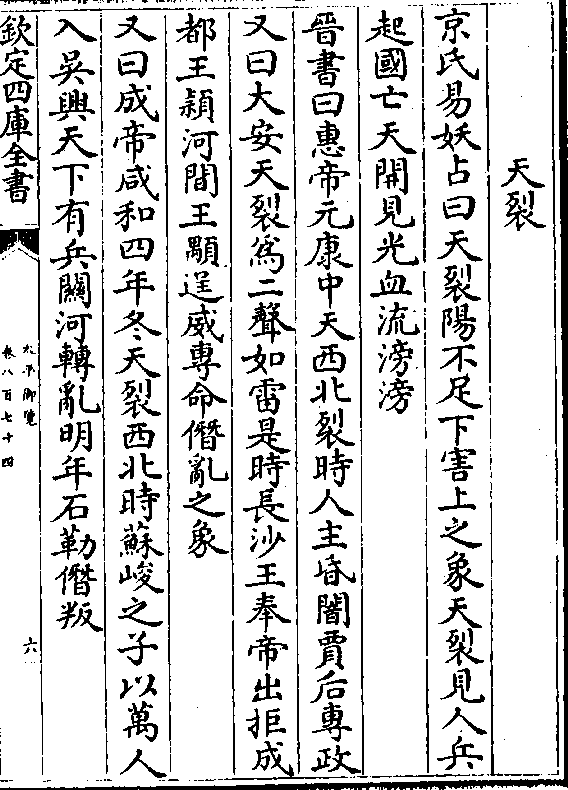 天裂
京氏易妖占曰天裂陽不足下害上之象天裂見人兵
起國亡天開見光血流滂滂
晉書曰惠帝元康中天西北裂時人主昏闇賈后專政
又曰大安天裂為二聲如雷是時長沙王奉帝出拒成
都王頴河間王顒逞威專命僭亂之象
又曰成帝咸和四年冬天裂西北時蘇峻之子以萬人
入吳興天下有兵關河轉亂明年石勒僭叛
欽定四庫全書
太平御覽
卷八百七十四
六